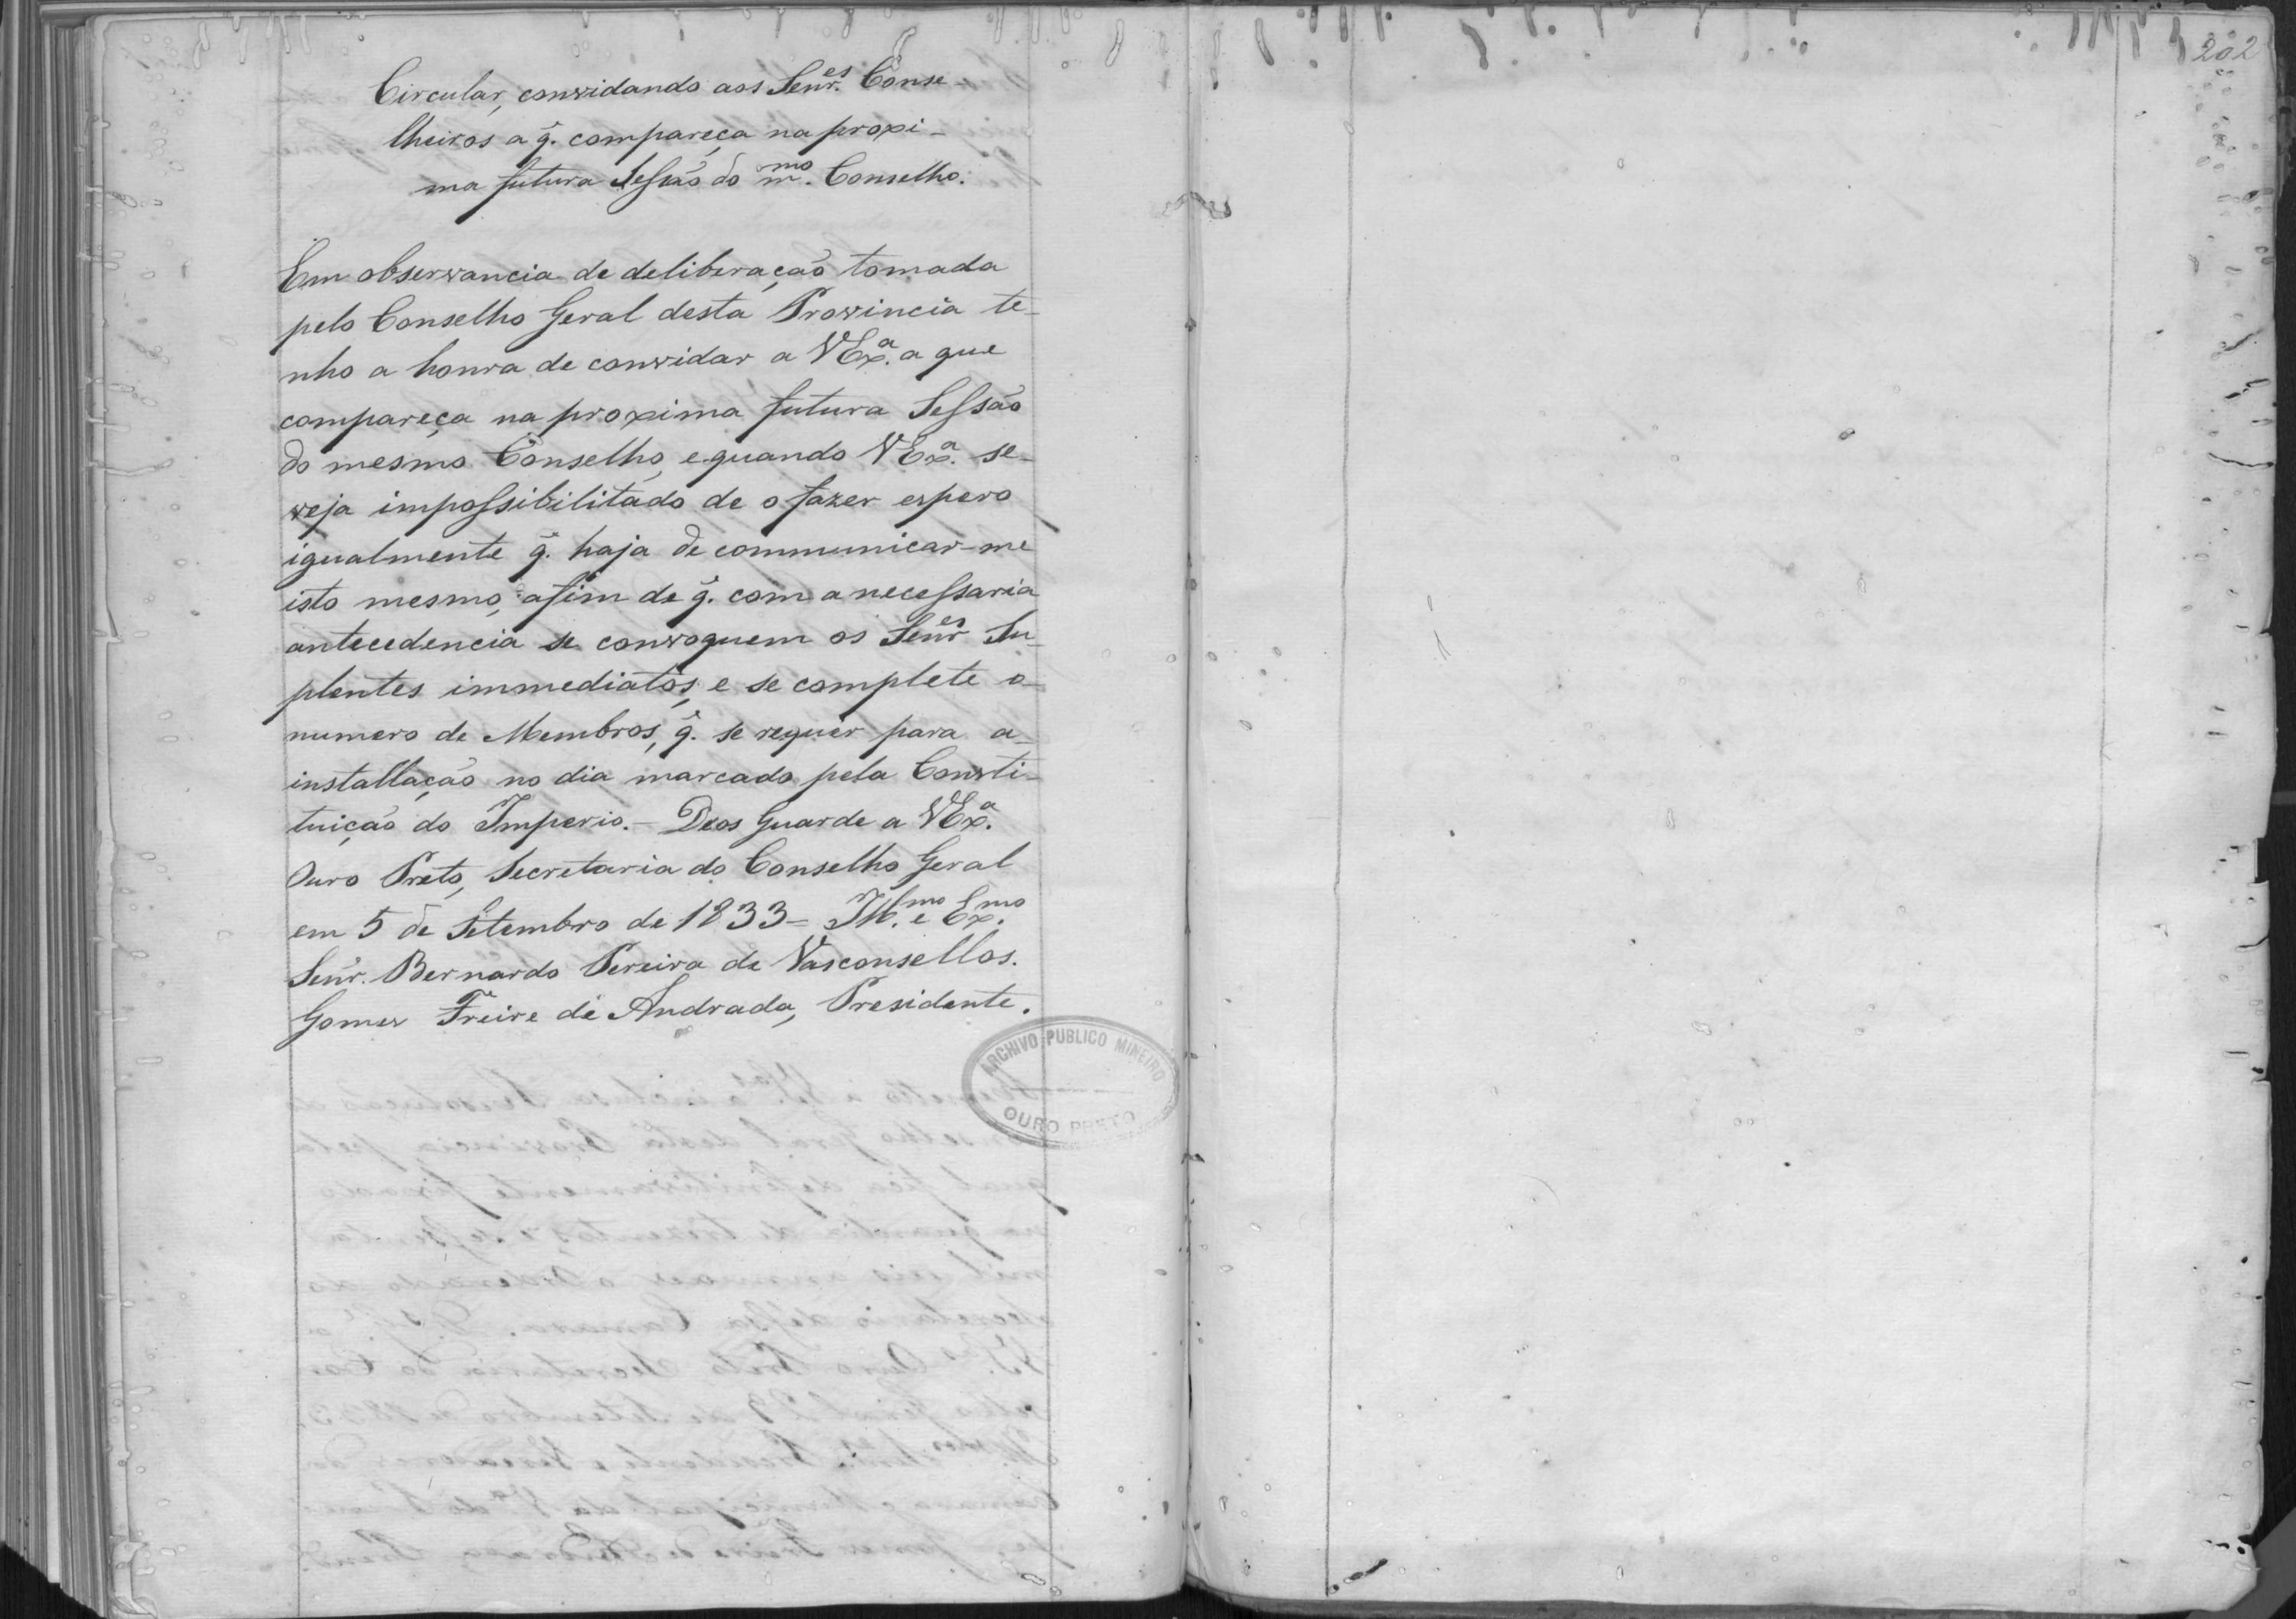 Circular, convidando aos Senr.es Conse-
lheiros a q̃. compareça na proxi-
ma futura Sessão do mmo. Conselho.
Em observancia de deliberação tomada
pelo Conselho Geral desta Provincia te-
nho a honra de convidar a VExa. a que
compareça na proxima futura Sessão
do mesmo Conselho, e quando VExa. se-
veja impossibilitado de o fazer espero
igualmente q̃. haja de communicar-me
isto mesmo, afim de q̃. com a necessaria
antecedencia se convoquem os Senres Su-
plentes immediatos, e se complete o-
numero de Membros, q̃. se requer para a-
installação no dia marcado pela Consti-
tuição do Imperio. - Deos Guarde a VExa.
Ouro Preto, Secretaria do Conselho Geral
em 5 de Setembro de 1833 = Ill.mo e Ex.mo
Senr. Bernardo Pereira de Vasconsellos.
Gomes Freire de Andrada, Presidente.
ARCHIVO PUBLICO MINEIRO
OURO PRETO
202